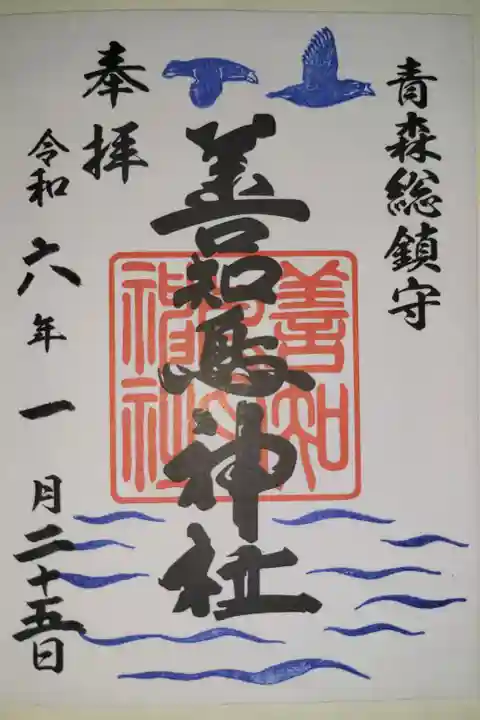 青森総鎮守
善知鳥神社
奉拝
令和六年一月二十五日